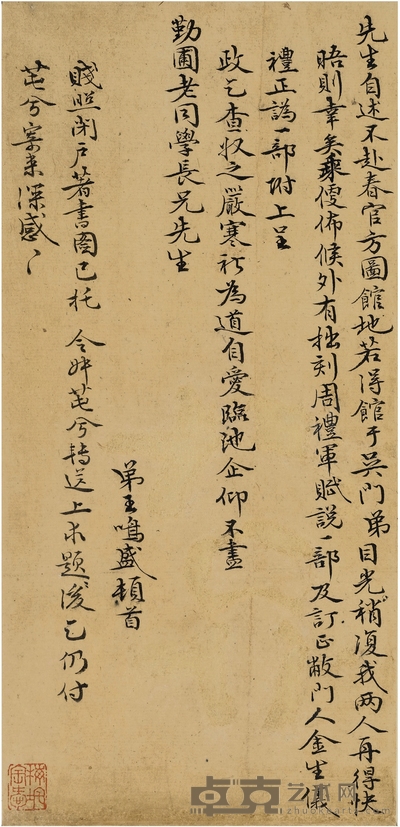 先生自述不赴春官方圖館地若得館于吳門弟目光稍復我两人再得快
晤則幸矣乘便佈候外有拙刻周禮軍賦說一部及訂正敝門人金生儀
禮正譌一部附上呈
政乞查收之嚴寒祈為道自愛臨池企仰不盡
勤圃老同學長兄先生
弟王鳴盛頓首
賤照閉戶著書圖已托令姪芷兮轉送上求題後乞仍付
芷兮寄来深感〻
卓克艺术网